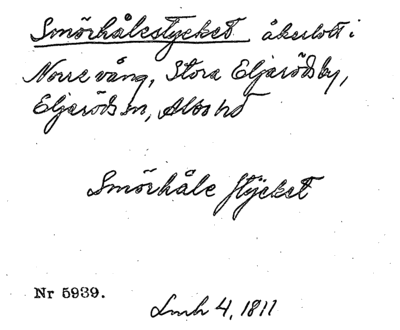 Smörhålestycket åkerlott i
Norre vång, Stora Eljarödsby,
Eljaröds sn, Albo hd
Smörhåle stÿcket
Nr 5939.
Lmh 4, 1811